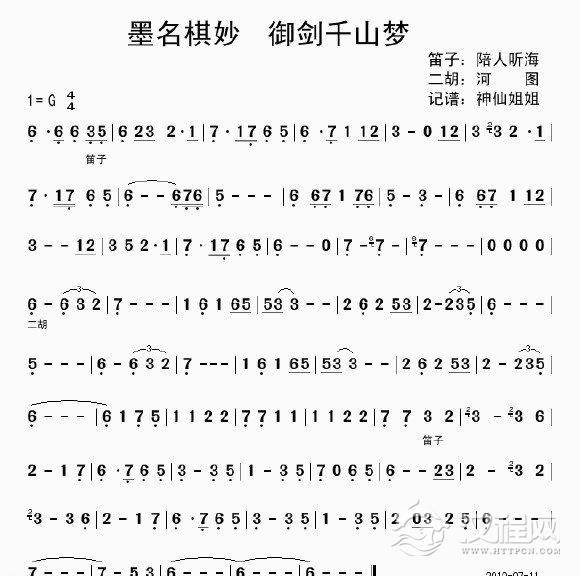 墨名棋妙 御剑千山梦
笛子：陪人听海
二胡：河 图
记谱：神仙姐姐
1=G 4/4
6·6 6 35|6 23 2·1|7·17 6 5|6·7 1 12|3-0 12|3 3 2·1|
笛子
7·17 6 5|6--676|5---|6 67 1 76|5-3-|6 67 1 12|
3--12|3 5 2·1|7·17 6 5|6--0|7-7-|7---|0 0 0 0|
6-6 3 2|7---|1 6 1 65|53 3--|2 6 2 53|2-235|6---|
二胡
5---|6-6 3 2|7---|1 6 1 65|53 3--|2 6 2 53|2-235|
6---|6 1 7 5|1 1 2 2|7 7 1 1|1 1 2 2|7 7 3 2|3-3 6|
笛子
2-1 7|6·7 6 5|3-3 6|2-1 7|6--23|2---|3-3 6|
3-3 6|2-1 7|6·7 6 5|3---|2 03 2 5|6---|
7---|6---|5---|6---|